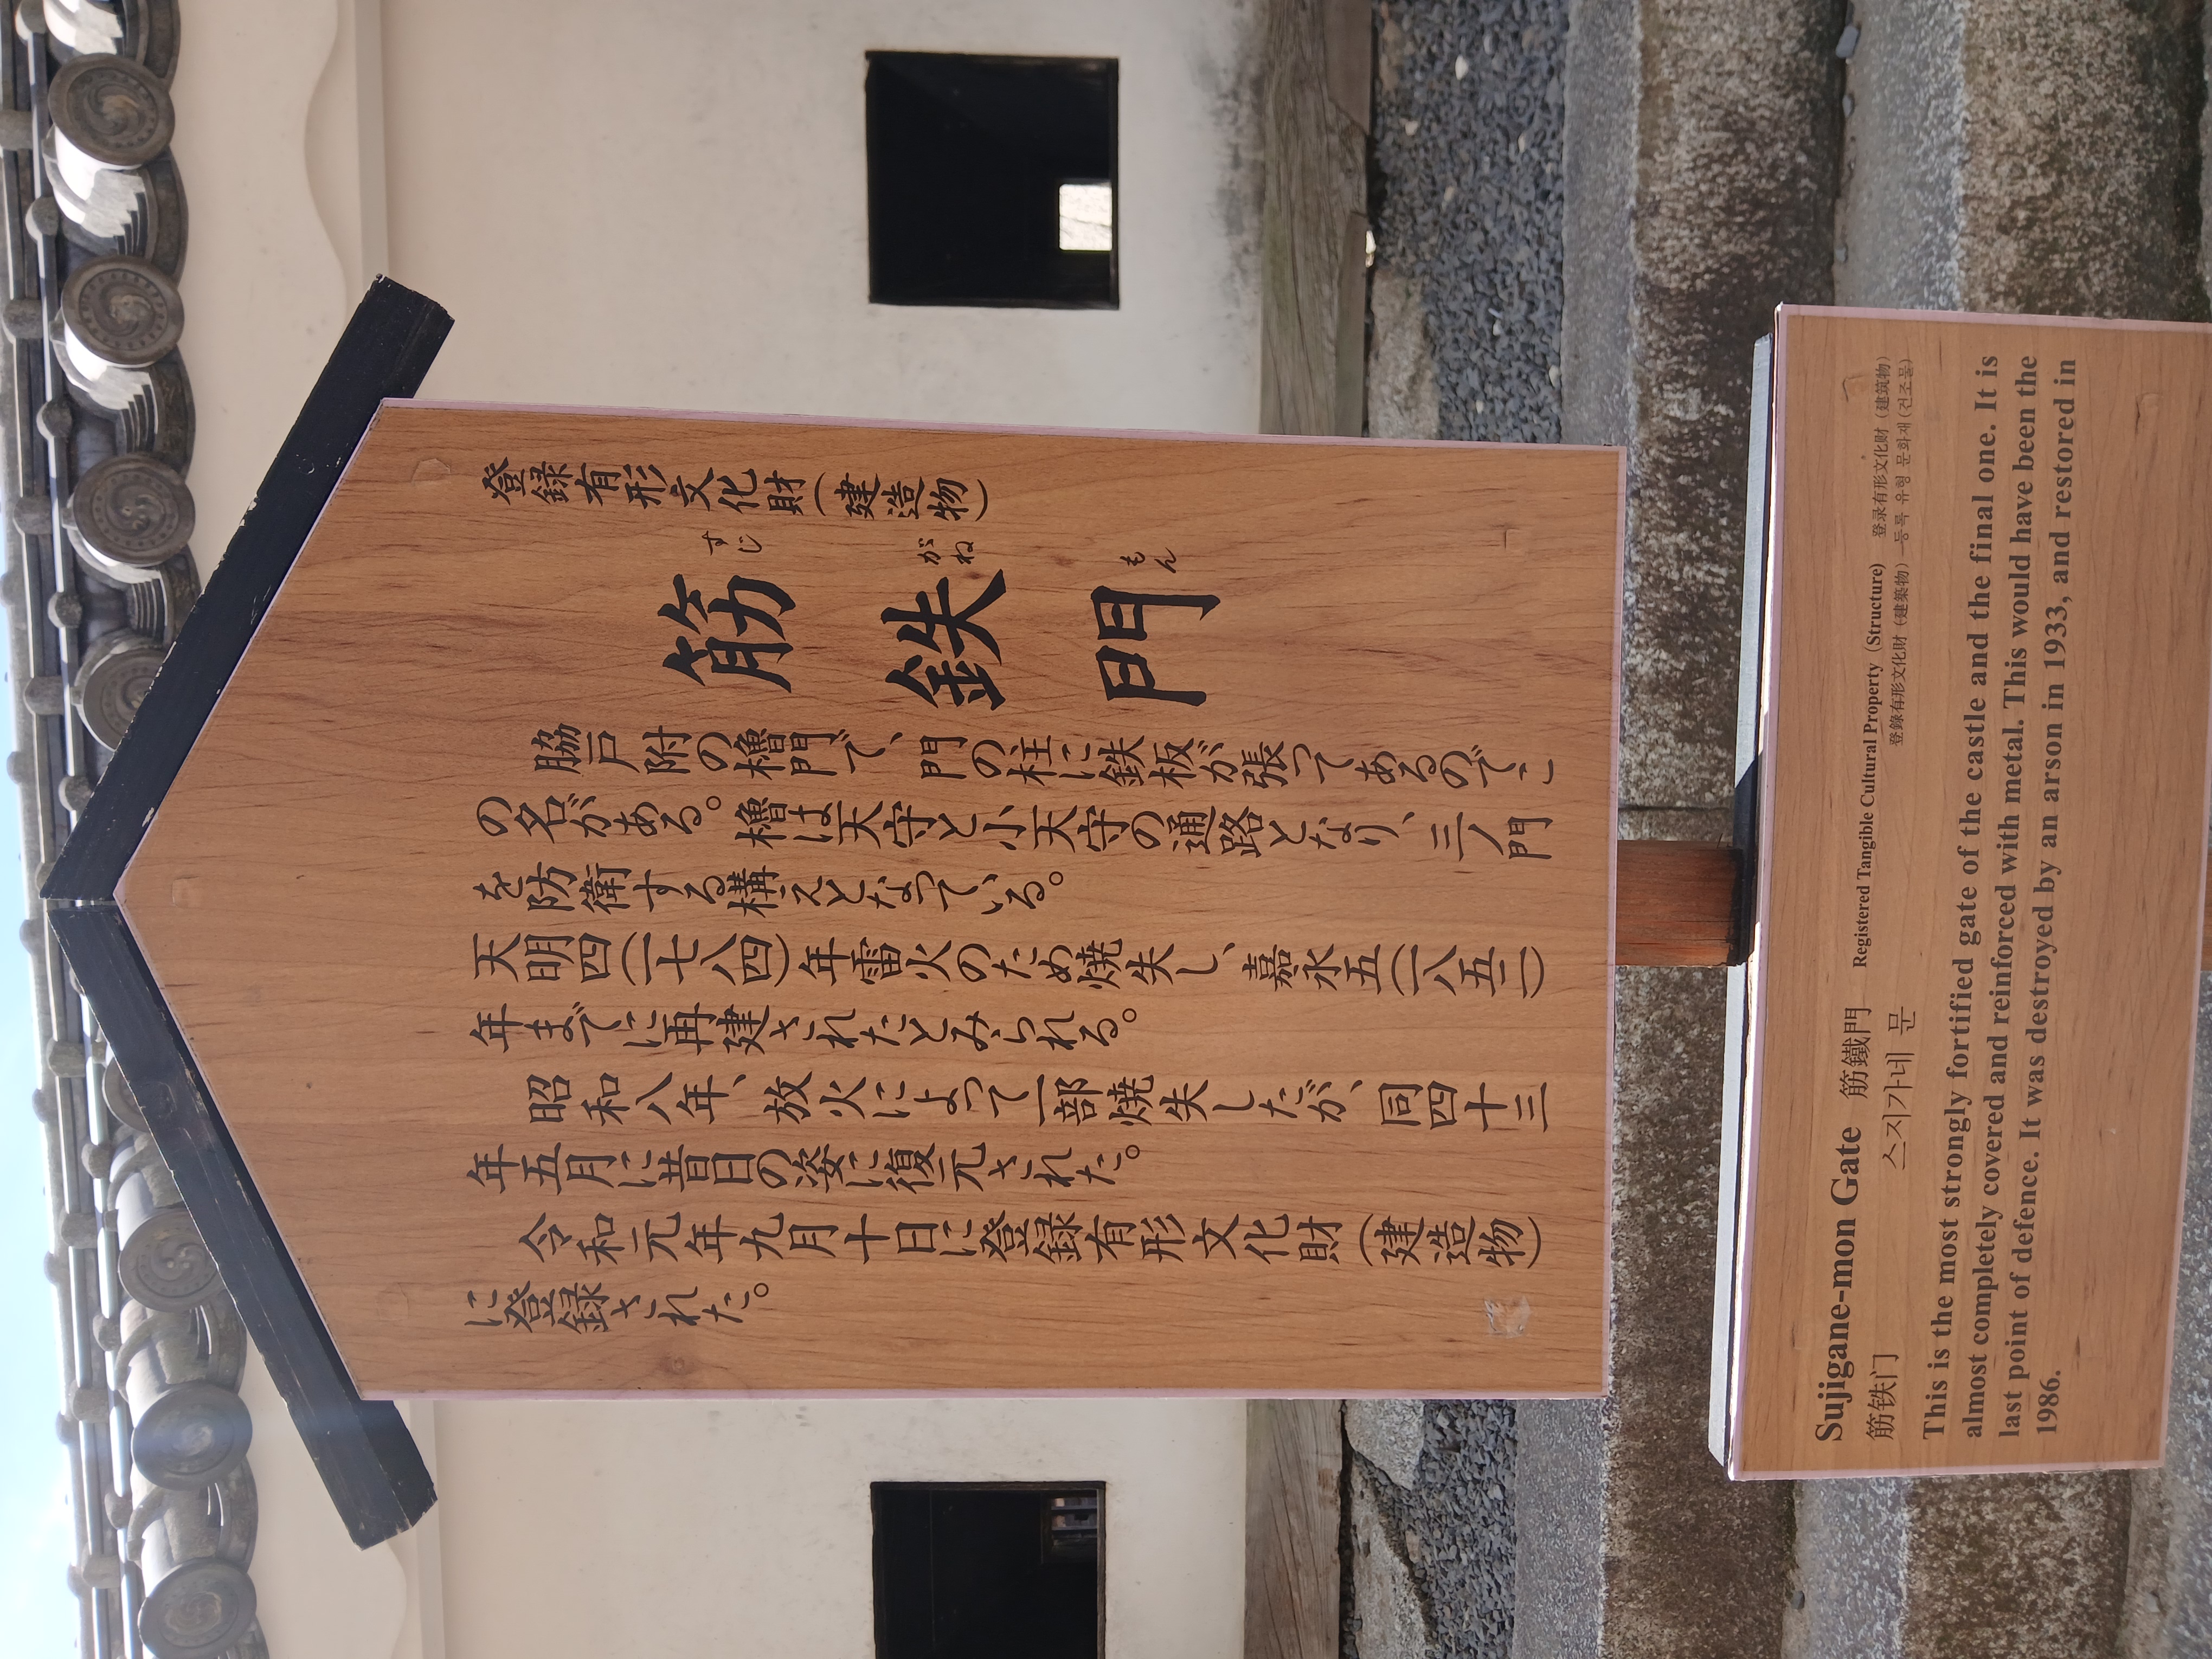 登録有形文化財(建造物)
筋鉄門
すじがねもん
脇戸附の櫓門で、門の柱に鉄板が張ってあるのでこ
の名がある。櫓は天守と小天守の通路となり、三ノ門
を防衛する構えとなっている。
天明四(一七八四)年雷火のため焼失し、嘉永五(一八五二)
年までに再建されたとみられる。
昭和八年、放火によって一部焼失したが、同四十三
年五月に昔日の姿に復元された。
令和元年九月十日に登録有形文化財(建造物)
に登録された。
Sujigane-mon Gate 筋鐵門 Registered Tangible Cultural Property (Structure) 登录有形文化财(建筑物)
筋铁门 스지가네 문 登錄有形文化財(建築物) 등록 유형 문화재(건조물)
This is the most strongly fortified gate of the castle and the final one. It is
almost completely covered and reinforced with metal. This would have been the
last point of defence. It was destroyed by an arson in 1933, and restored in
1986.